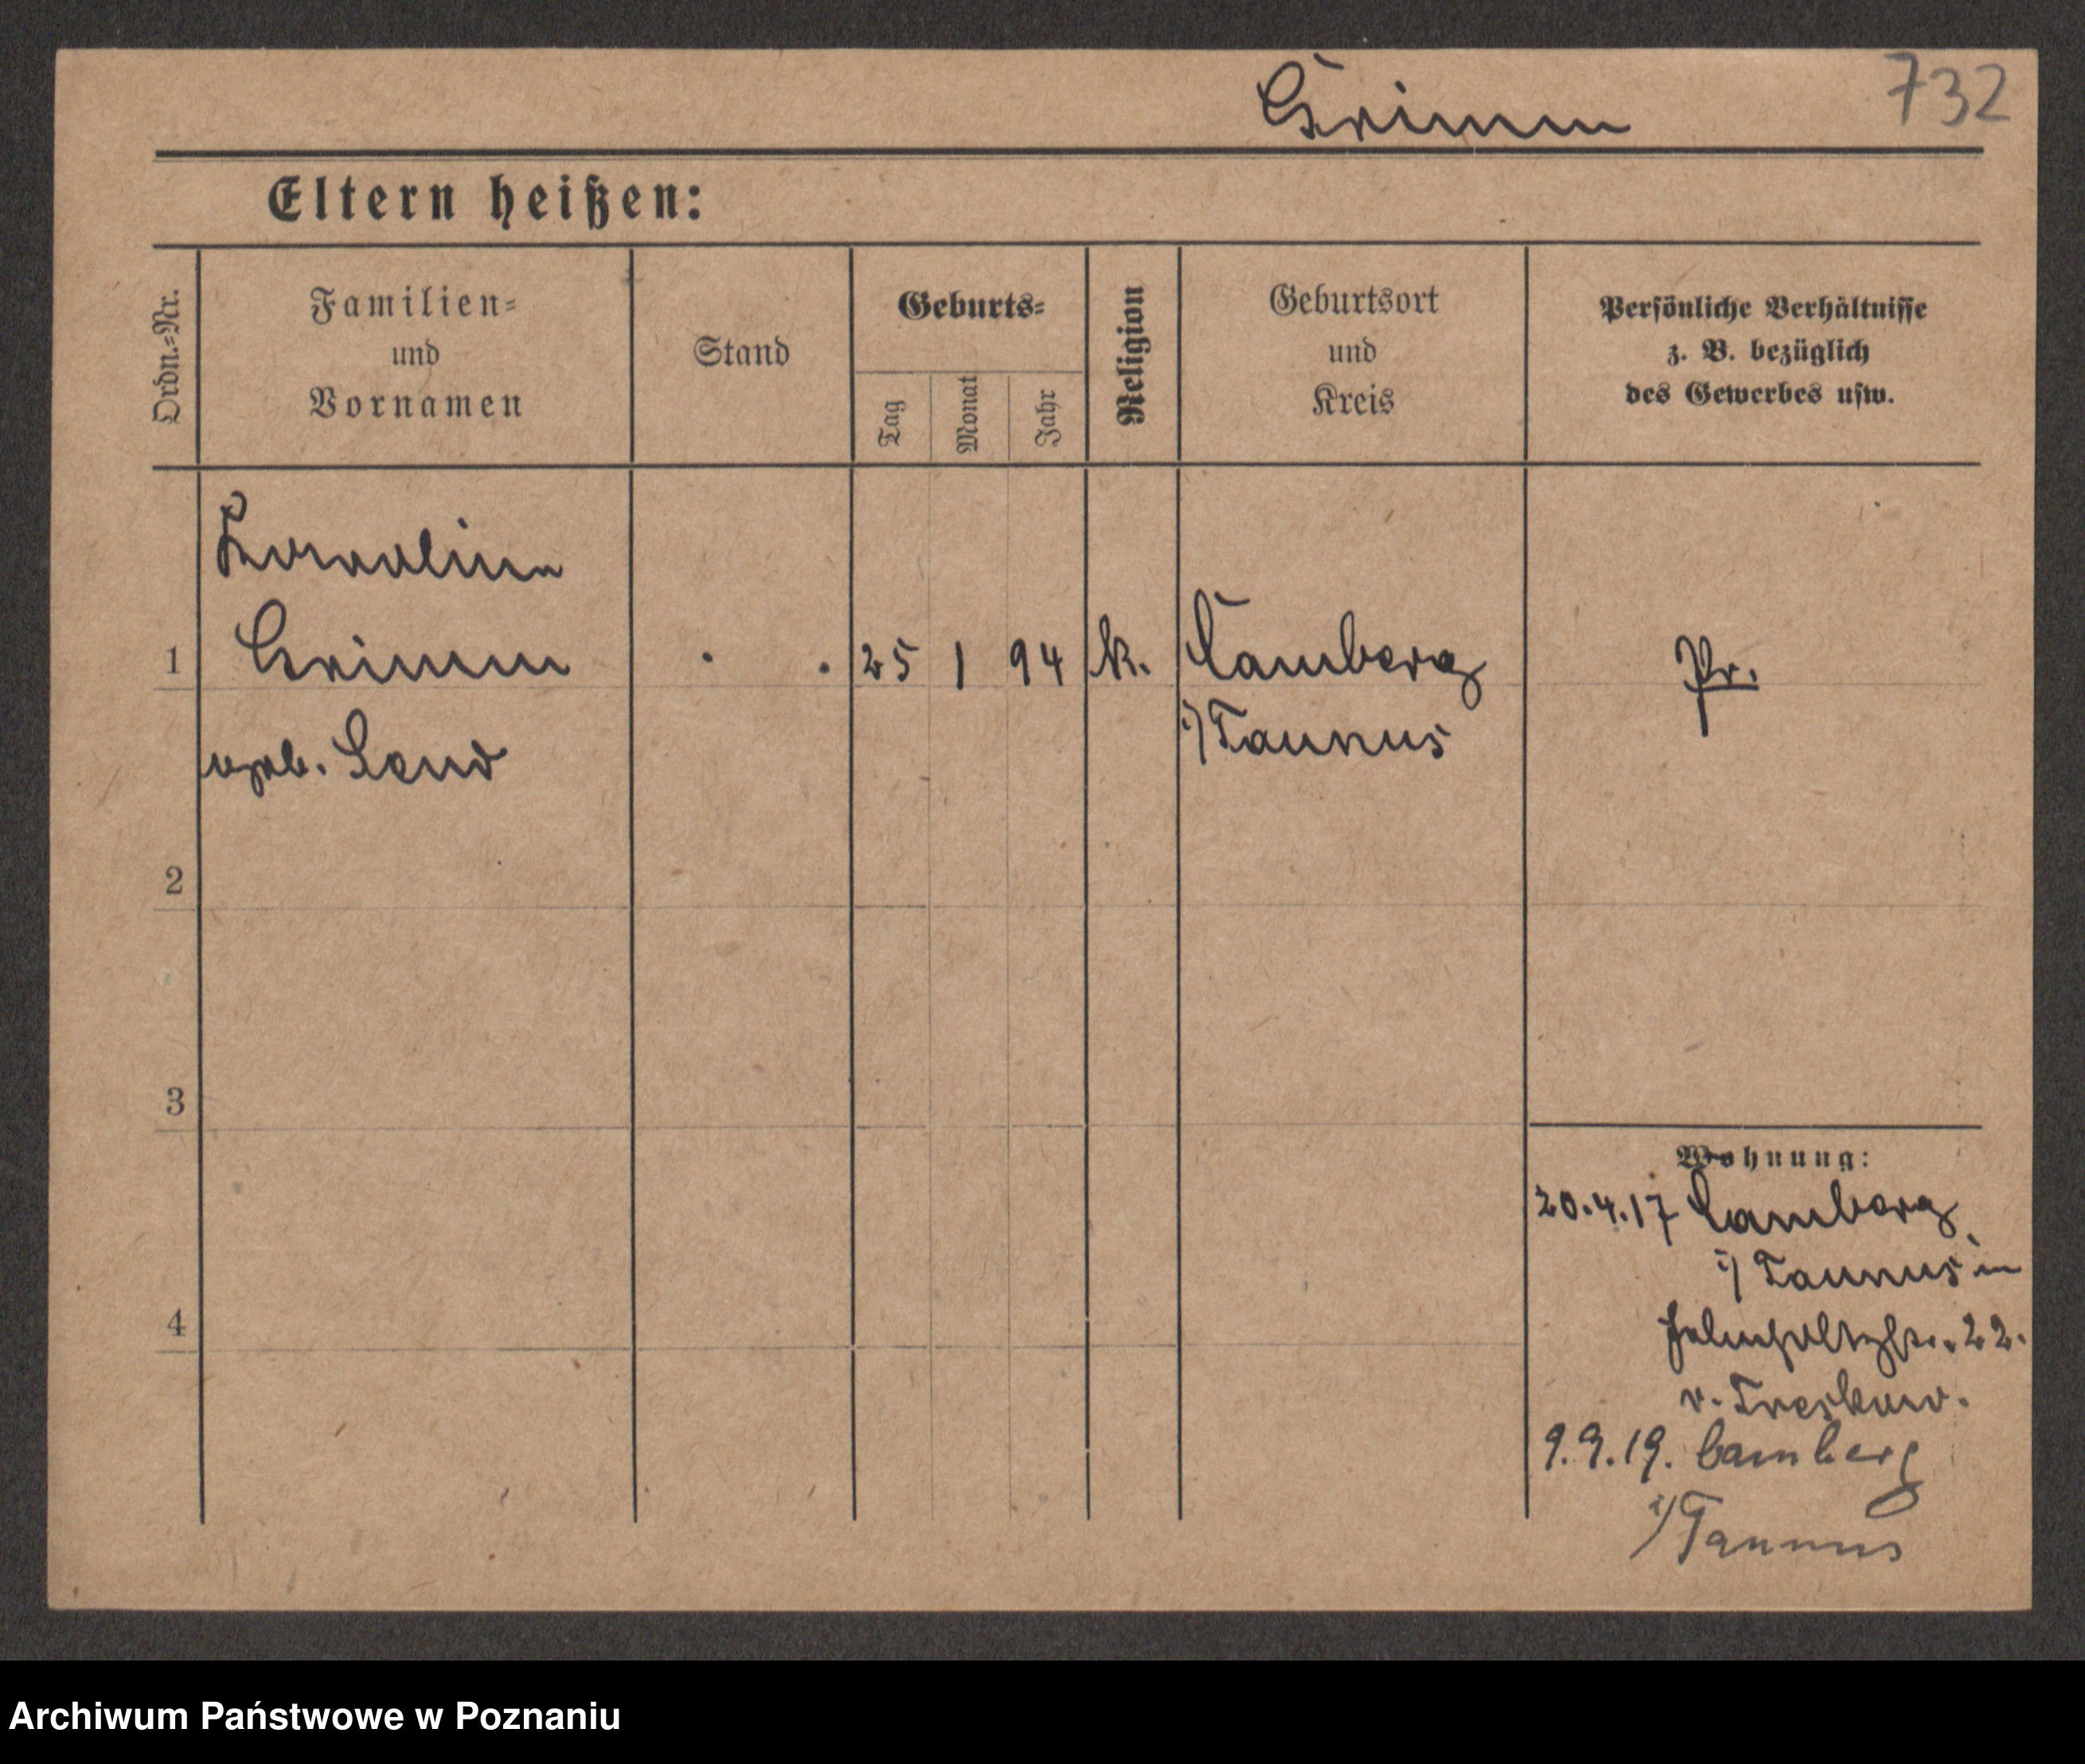 Grimm 732
Eltern heißen:
Ordn.=Nr. Familien= und Vornamen Stand Geburts= Tag Monat Jahr Religion Geburtsort und Kreis Persönliche Verhältnisse z. B. bezüglich des Gewerbes usw.
Grimm
1 25 1 94 k. Camberg Pr.
i/ Taunus
geb.
2
3
4
Wohnung:
20.4.17 Camberg
i/ Taunus in
Helmholtzstr. 22.
v. Treskow.
9.9.19. Camberg
i/ Taunus
Archiwum Państwowe w Poznaniu